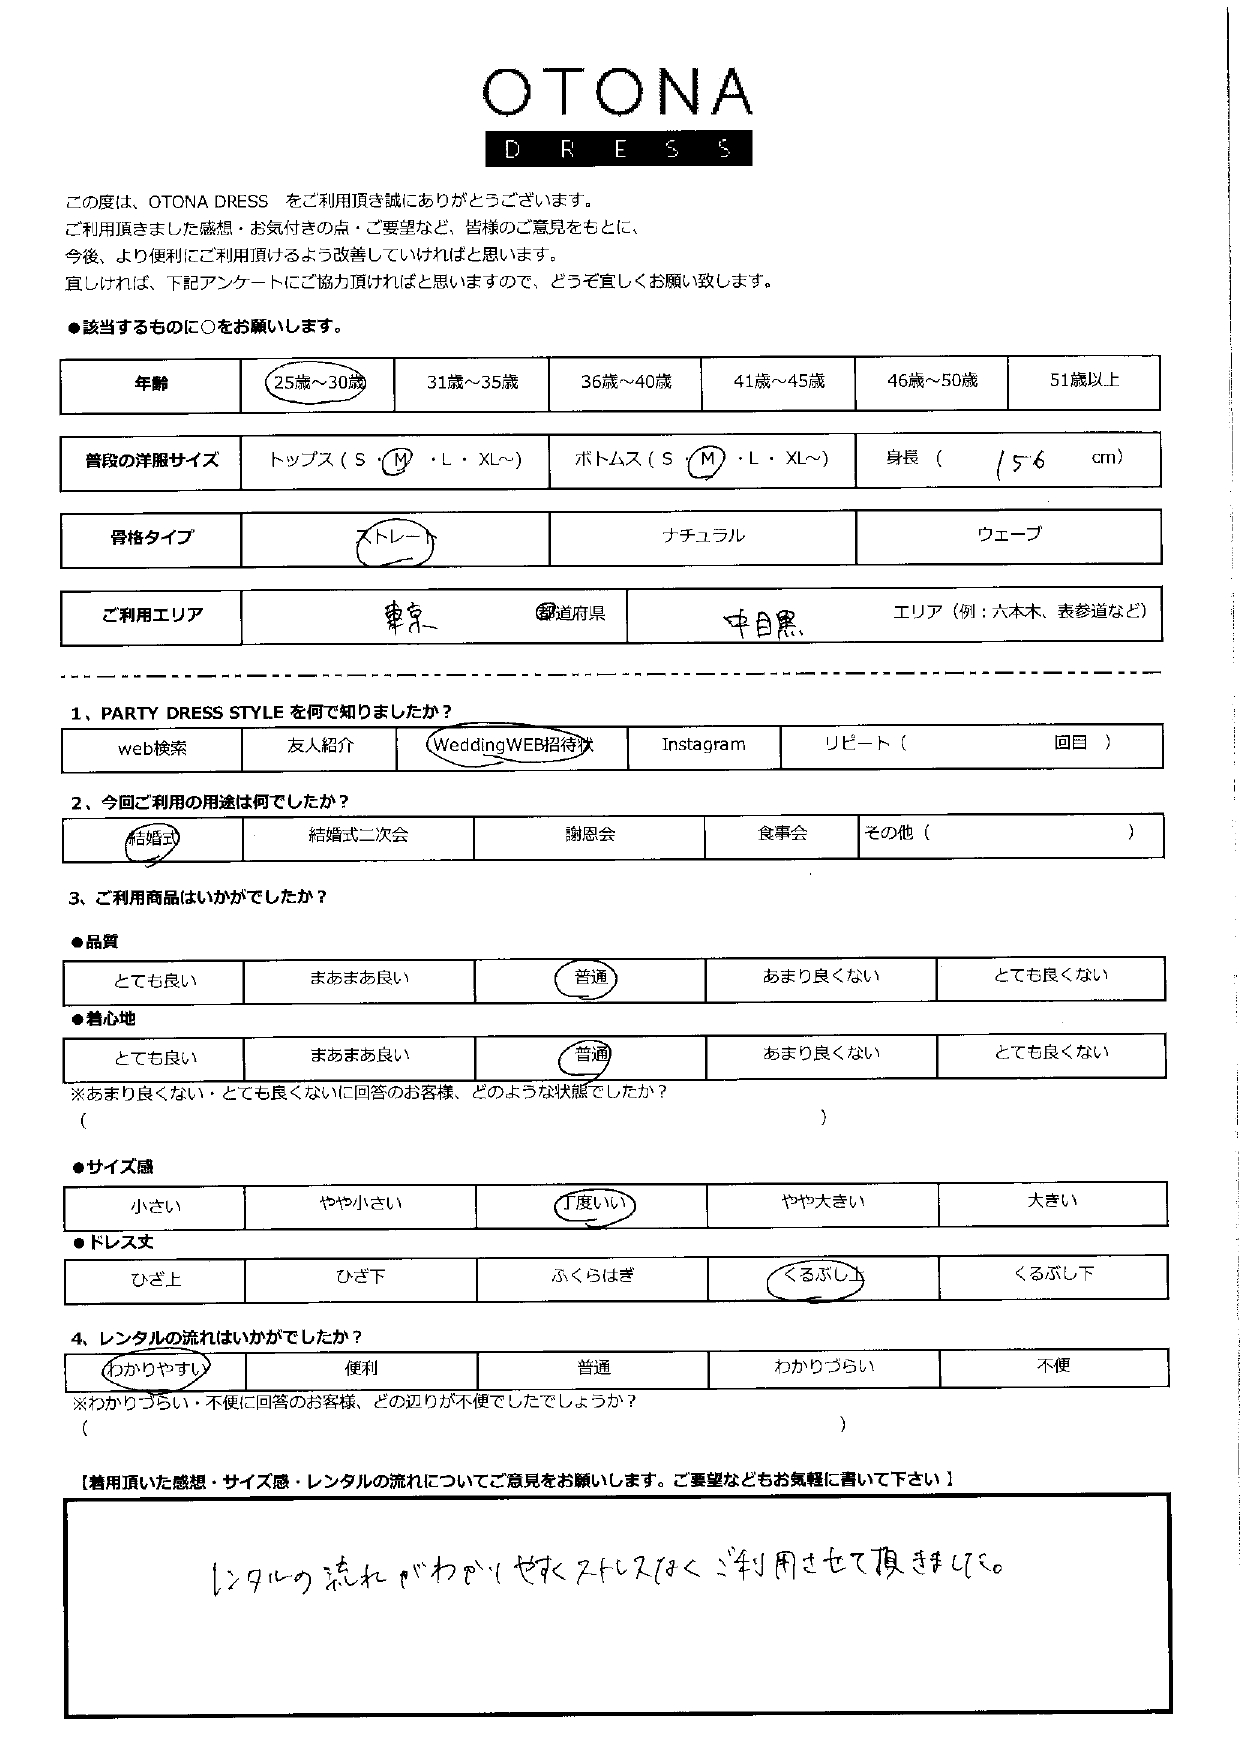 OTONA
DRESS
この度は、OTONA DRESS　をご利用頂き誠にありがとうございます。
ご利用頂きました感想・お気付きの点・ご要望など、皆様のご意見をもとに、
今後、より便利にご利用頂けるよう改善していければと思います。
宜しければ、下記アンケートにご協力頂ければと思いますので、どうぞ宜しくお願い致します。
●該当するものに○をお願いします。
年齢 25歳～30歳 31歳～35歳 36歳～40歳 41歳～45歳 46歳～50歳 51歳以上
普段の洋服サイズ トップス（S・M・L・XL～） ボトムス（S・M・L・XL～） 身長（ 156 cm）
骨格タイプ ストレート ナチュラル ウェーブ
ご利用エリア 東京 都道府県 中目黒 エリア（例：六本木、表参道など）
1、PARTY DRESS STYLE を何で知りましたか？
web検索 友人紹介 WeddingWEB招待状 Instagram リピート（ 回目 ）
2、今回ご利用の用途は何でしたか？
結婚式 結婚式二次会 謝恩会 食事会 その他（ ）
3、ご利用商品はいかがでしたか？
●品質
とても良い まあまあ良い 普通 あまり良くない とても良くない
●着心地
とても良い まあまあ良い 普通 あまり良くない とても良くない
※あまり良くない・とても良くないに回答のお客様、どのような状態でしたか？
（ ）
●サイズ感
小さい やや小さい 丁度いい やや大きい 大きい
●ドレス丈
ひざ上 ひざ下 ふくらはぎ くるぶし上 くるぶし下
4、レンタルの流れはいかがでしたか？
わかりやすい 便利 普通 わかりづらい 不便
※わかりづらい・不便に回答のお客様、どの辺りが不便でしたでしょうか？
（ ）
【着用頂いた感想・サイズ感・レンタルの流れについてご意見をお願いします。ご要望などもお気軽に書いて下さい】
レンタルの流れがわかりやすくストレスなくご利用させて頂きました。